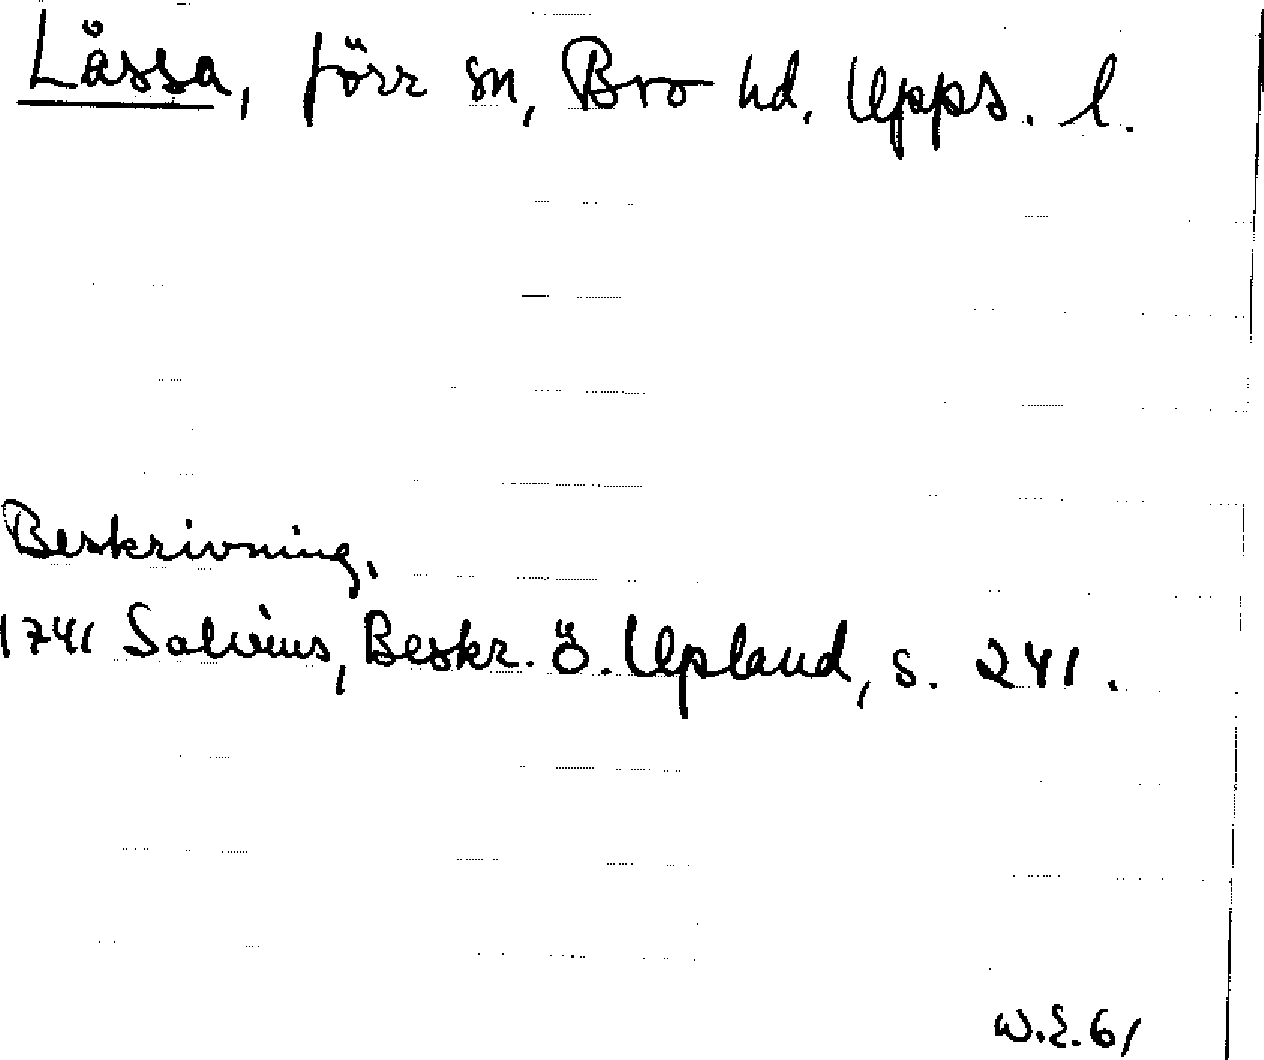 Låssa, förr sn, Bro hd. Upps. l.
Beskrivning.
1741 Salvius, Beskr. ö. Upland, s. 241.
W.E.61